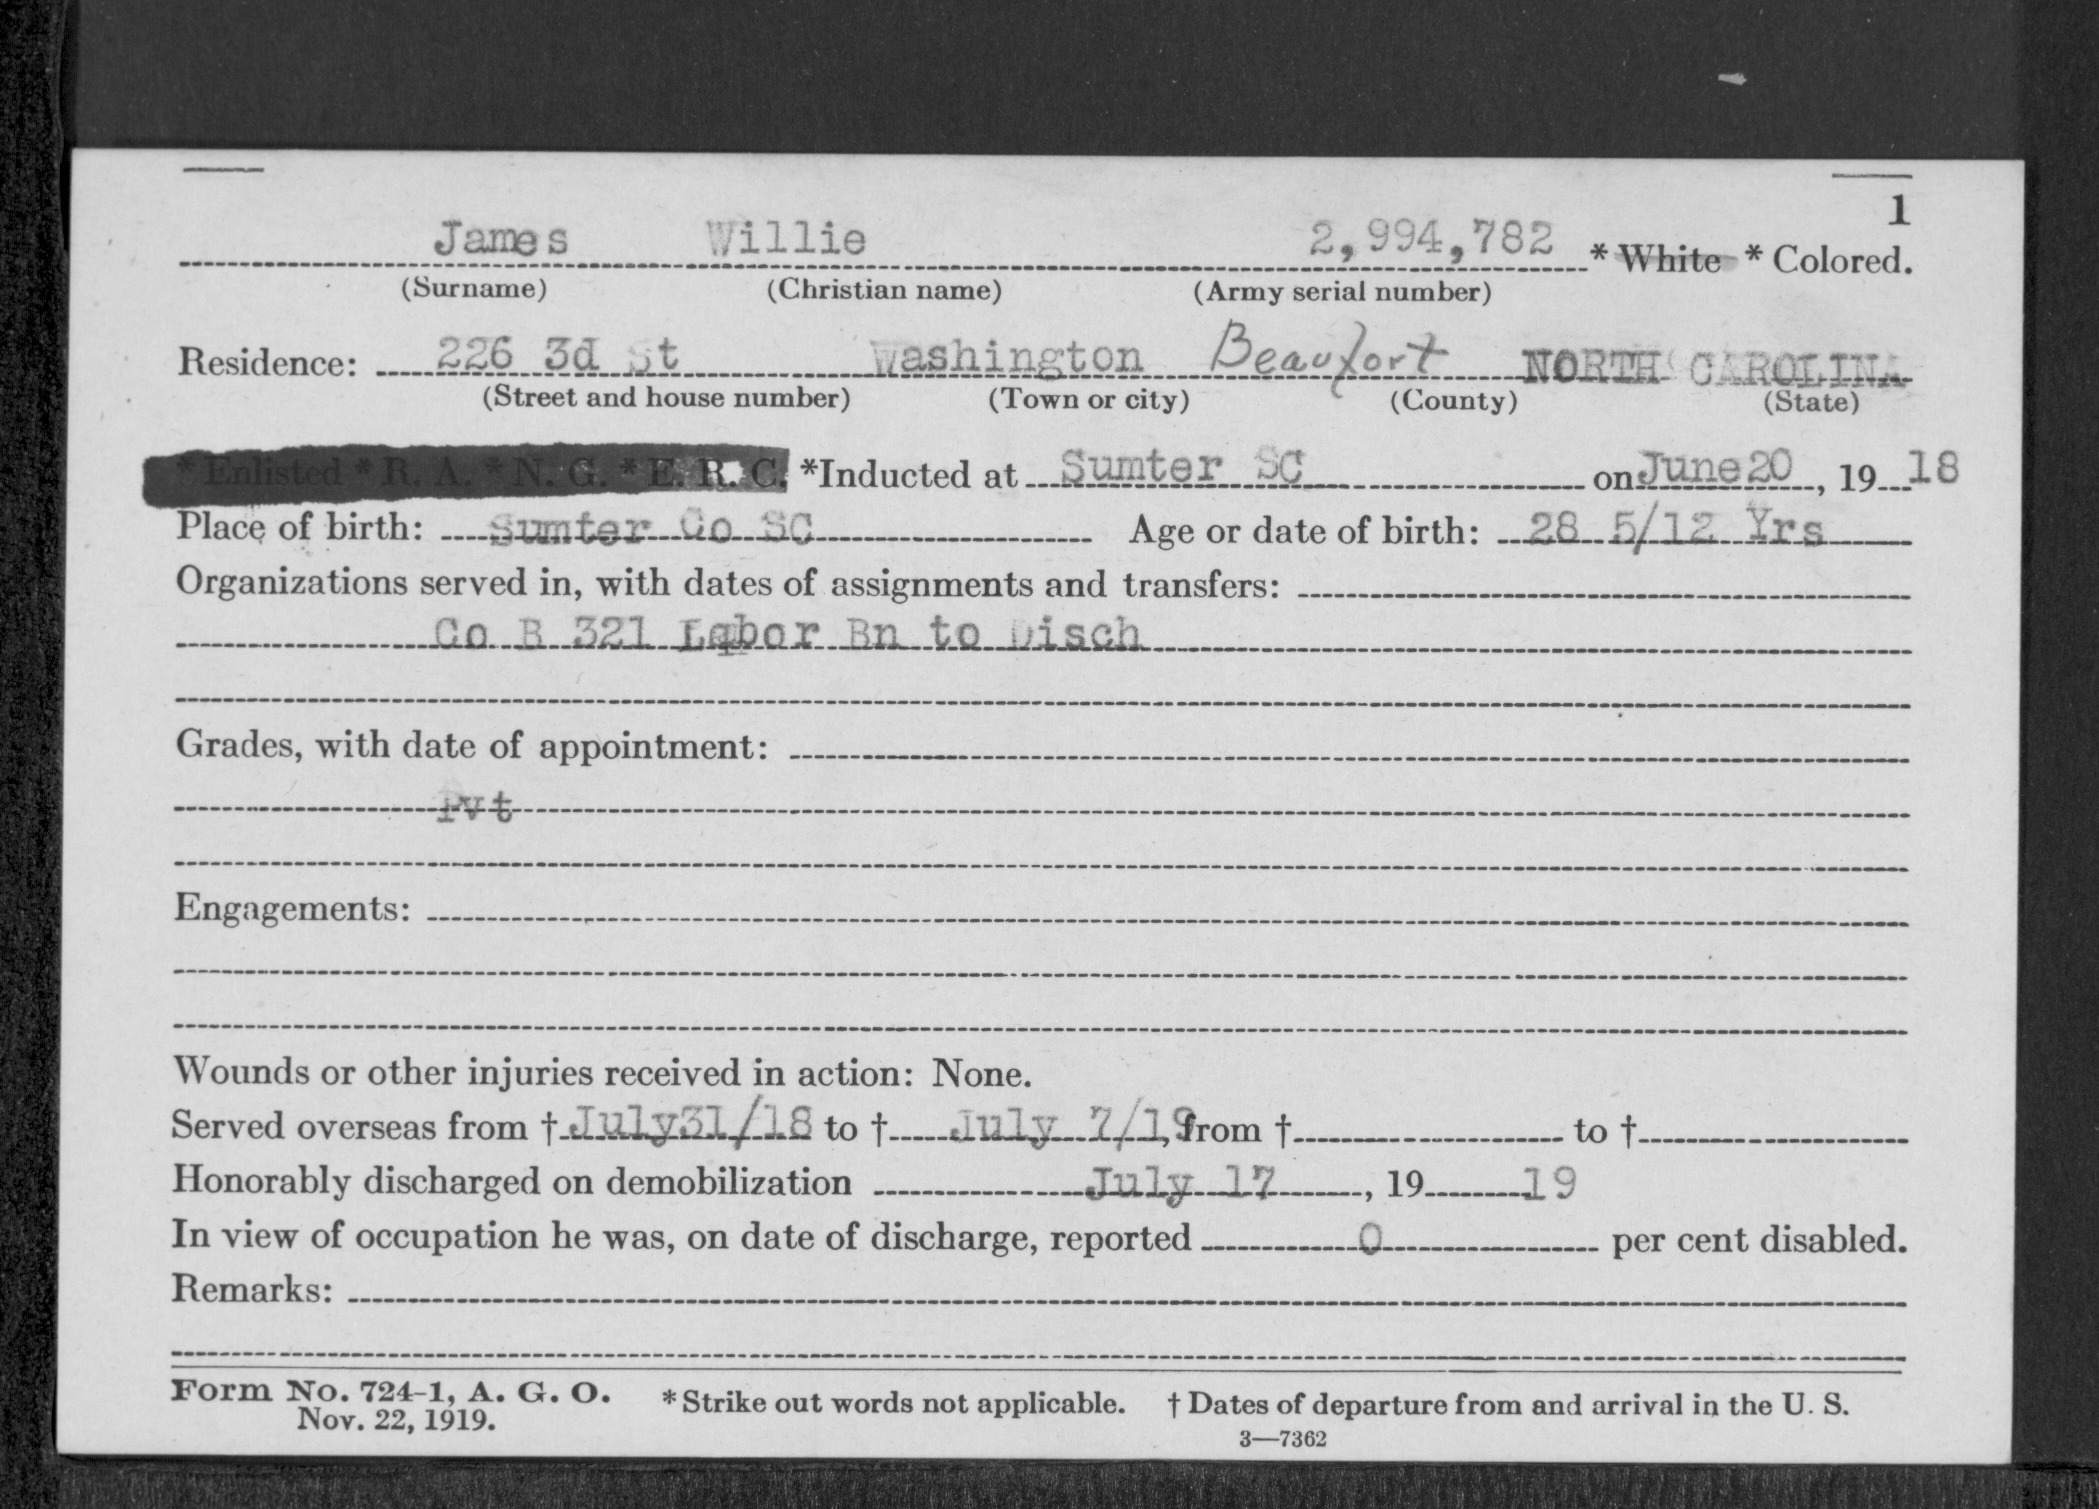 1
James Willie 2,994,782 * White * Colored.
(Surname) (Christian name) (Army serial number)
Residence: 226 3d St Washington Beaufort NORTH CAROLINA
(Street and house number) (Town or city) (County) (State)
* Enlisted * R. A. * N. G. * E. R. C. *Inducted at Sumter SC on June 20, 19 18
Place of birth: Sumter Co SC Age or date of birth: 28 5/12 Yrs
Organizations served in, with dates of assignments and transfers:
Co B 321 Labor Bn to Disch
Grades, with date of appointment:
Pvt
Engagements:
Wounds or other injuries received in action: None.
Served overseas from † July 31/18 to † July 7/19, from † to †
Honorably discharged on demobilization July 17, 19 19
In view of occupation he was, on date of discharge, reported 0 per cent disabled.
Remarks:
Form No. 724-1, A. G. O. * Strike out words not applicable. † Dates of departure from and arrival in the U. S.
Nov. 22, 1919.
3—7362